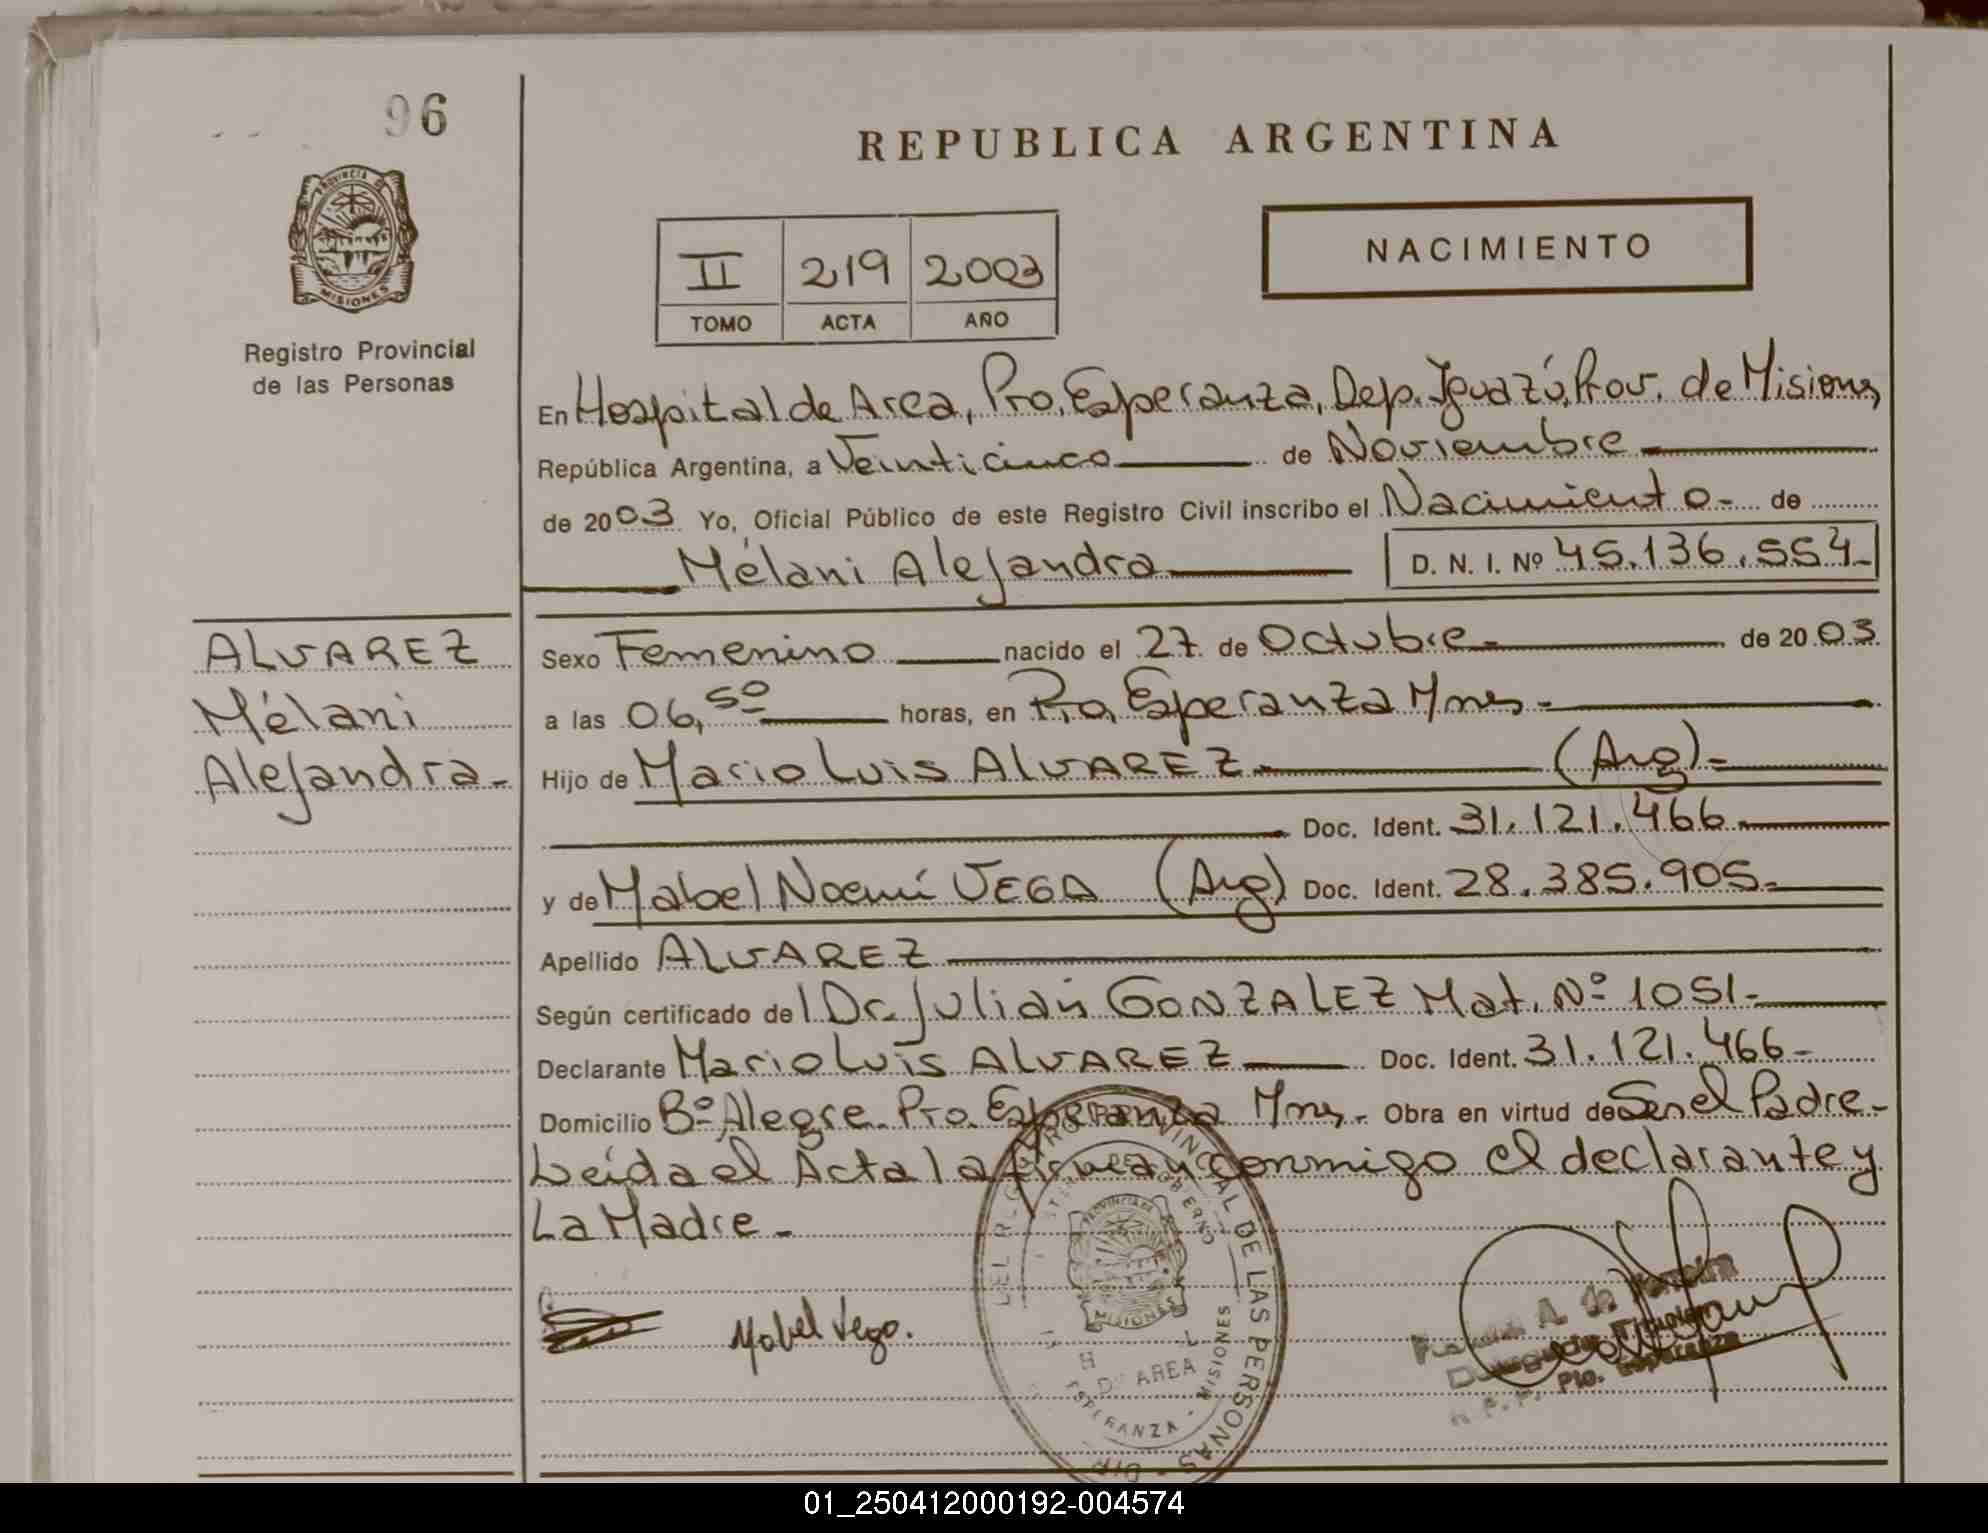 96
REPUBLICA ARGENTINA
PROVINCIA DE
MISIONES
Registro Provincial
de las Personas
II 219 2003
TOMO ACTA AÑO
NACIMIENTO
En Hospital de Area, Pto. Esperanza, Dep. Iguazú, Prov. de Misiones,
República Argentina, a Veinticinco de Noviembre
de 2003 Yo, Oficial Público de este Registro Civil inscribo el Nacimiento - de
Mélani Alejandra D. N. I. Nº 45.136.554-
ALVAREZ
Mélani
Alejandra-
Sexo Femenino nacido el 27 de Octubre- de 2003
a las 06,50 horas, en Pto. Esperanza Mnes-
Hijo de Mario Luis ALVAREZ- (Arg)-
Doc. Ident. 31.121.466-
y de Mabel Noemí VEGA (Arg) Doc. Ident. 28.385.905-
Apellido ALVAREZ
Según certificado del Dr. Julián GONZALEZ Mat. Nº 1051-
Declarante Mario Luis ALVAREZ Doc. Ident. 31.121.466-
Domicilio Bº Alegre- Pto. Esperanza Mnes- Obra en virtud de Ser el Padre-
Leída el Acta la firman conmigo el declarante y
La Madre-
Mabel Vega.
REGISTRO PROVINCIAL DE LAS PERSONAS
DE GOBIERNO
PROVINCIA DE
MISIONES
DE AREA
ESPERANZA - MISIONES
Pto. Esperanza
01_250412000192-004574